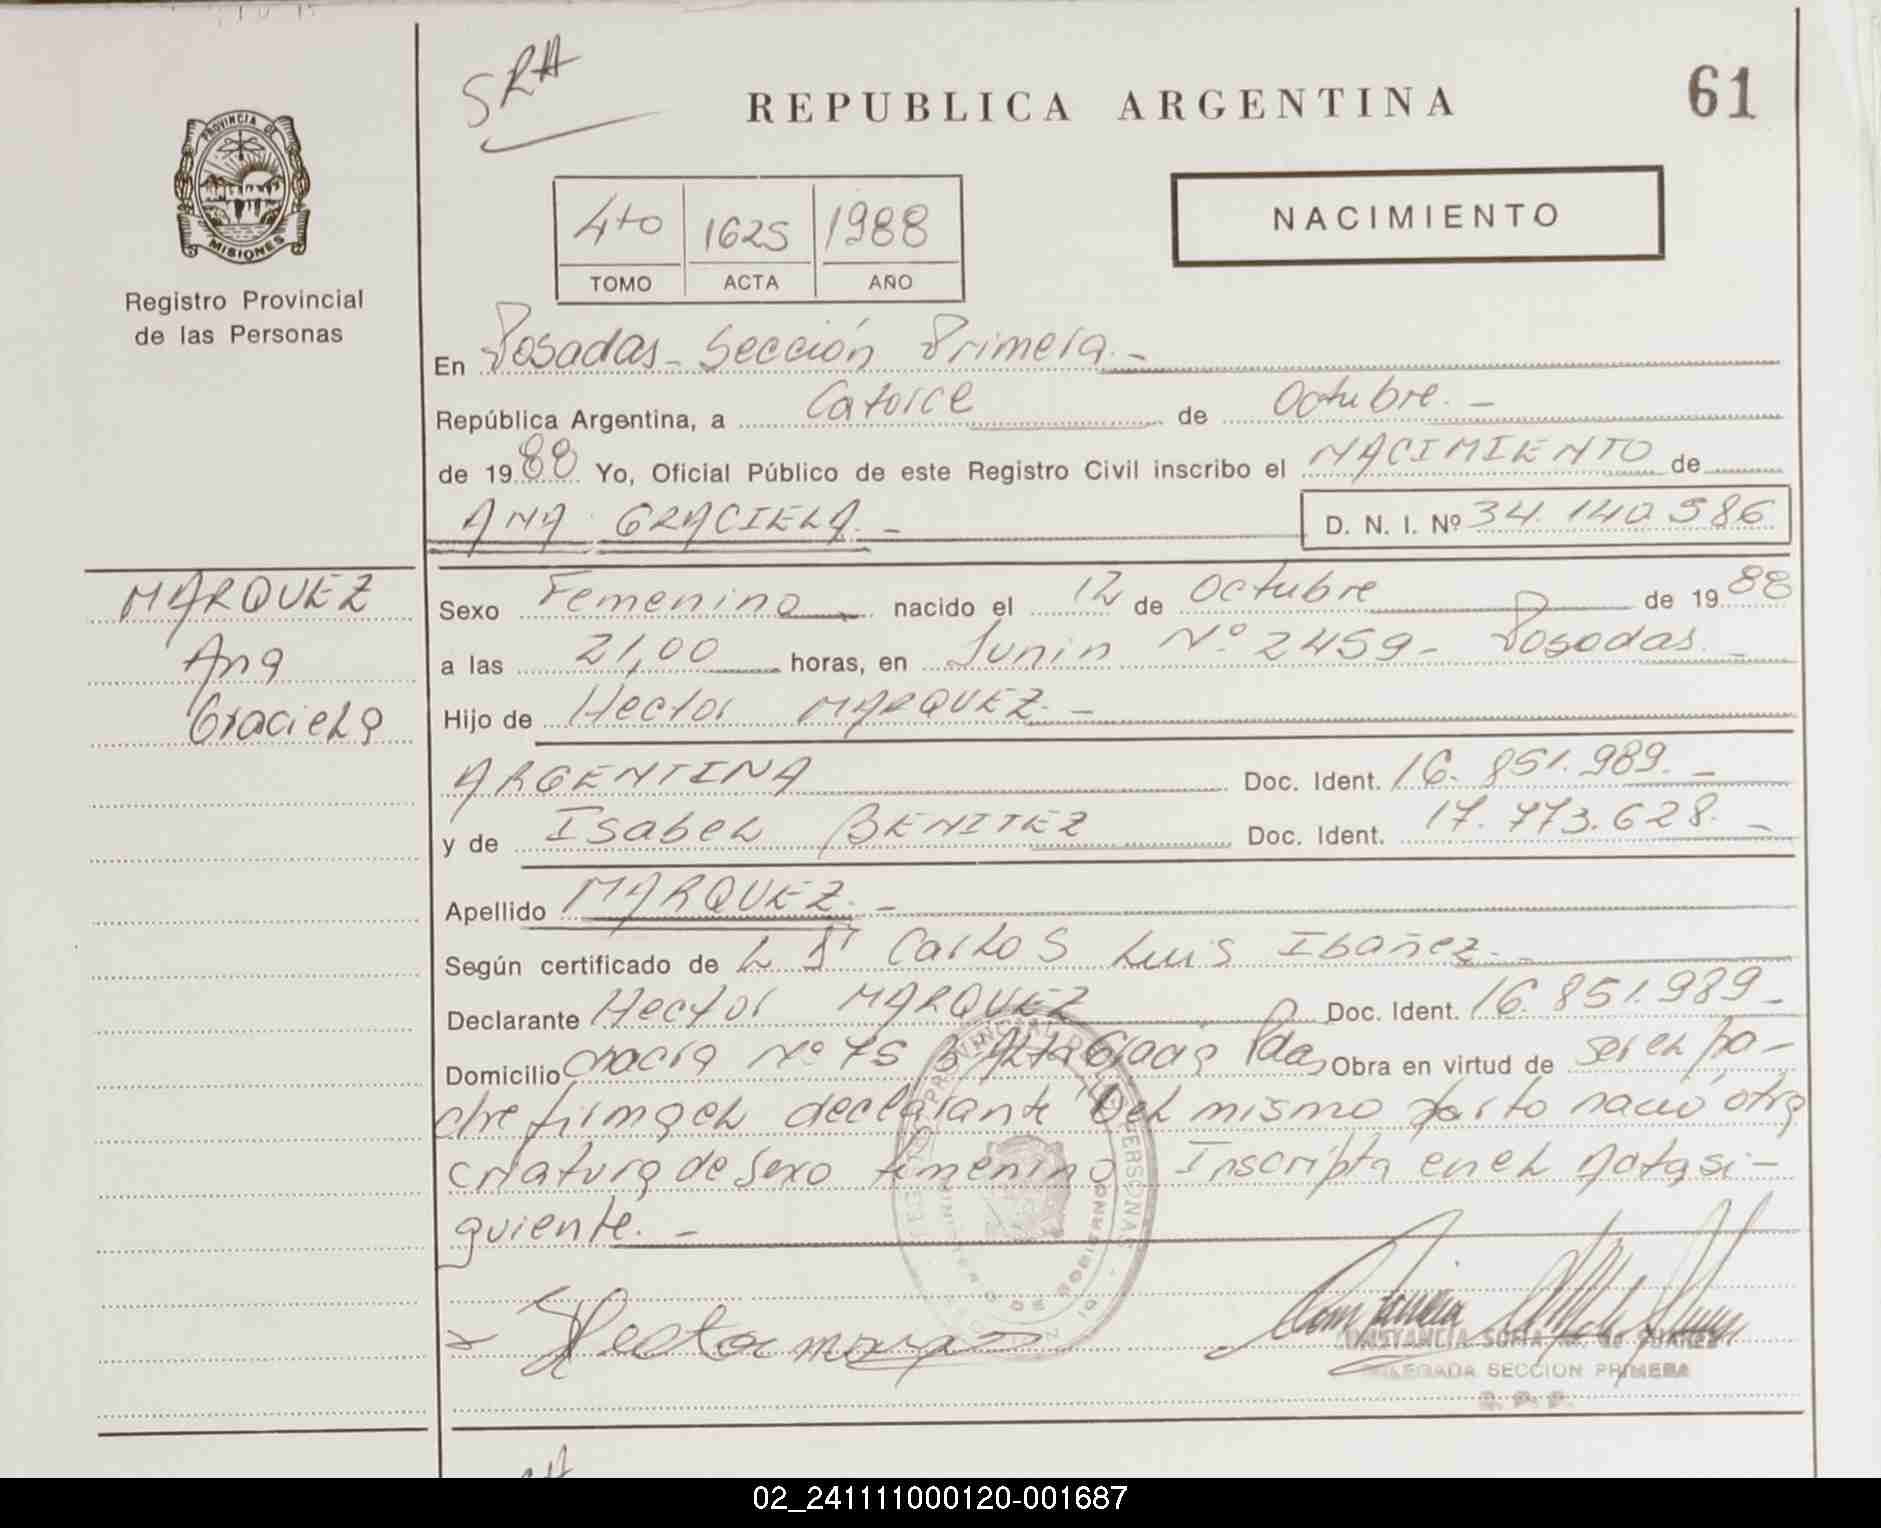 SRA
REPUBLICA ARGENTINA
61
PROVINCIA DE
MISIONES
Registro Provincial
de las Personas
4to 1625 1988
TOMO ACTA AÑO
NACIMIENTO
En Posadas - Sección Primera. -
República Argentina, a Catorce de Octubre. -
de 1988 Yo, Oficial Público de este Registro Civil inscribo el NACIMIENTO de
ANA GRACIELA. - D. N. I. Nº 34.140586
MARQUEZ
Ana
Graciela
Sexo Femenino nacido el 12 de Octubre de 1988
a las 21,00 horas, en Junin Nº 2459 - Posadas. -
Hijo de Hector MARQUEZ. -
ARGENTINA Doc. Ident. 16.851.989. -
y de Isabel BENITEZ Doc. Ident. 17.773.628. -
Apellido MARQUEZ. -
Según certificado de L Dr Carlos Luis Ibañez. -
Declarante Hector MARQUEZ Doc. Ident. 16.851.989 -
Domicilio Chacra Nº 75 B Alta Gracia Pdas Obra en virtud de ser el pa-
dre firma el declarante "Del mismo parto nació otra
criatura de sexo femenino Inscripta en el Acta si-
guiente. -
CONSTANCIA SOFIA M. de SUAREZ
DELEGADA SECCION PRIMERA
R. P. P.
02_241111000120-001687